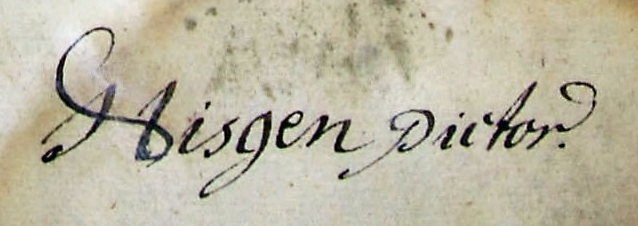 Hisgen Pictor.